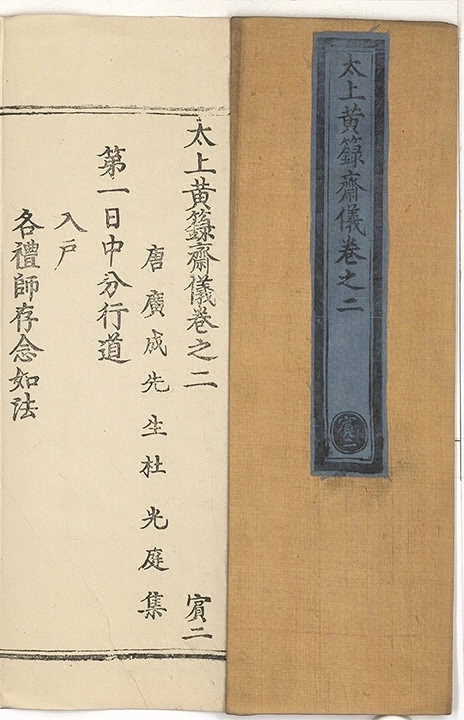 太上黄籙齋儀卷之二
賔二
太上黄籙齋儀卷之二 賔二
唐廣成先生杜光庭集
第一日中分行道
入戸
各禮師存念如法